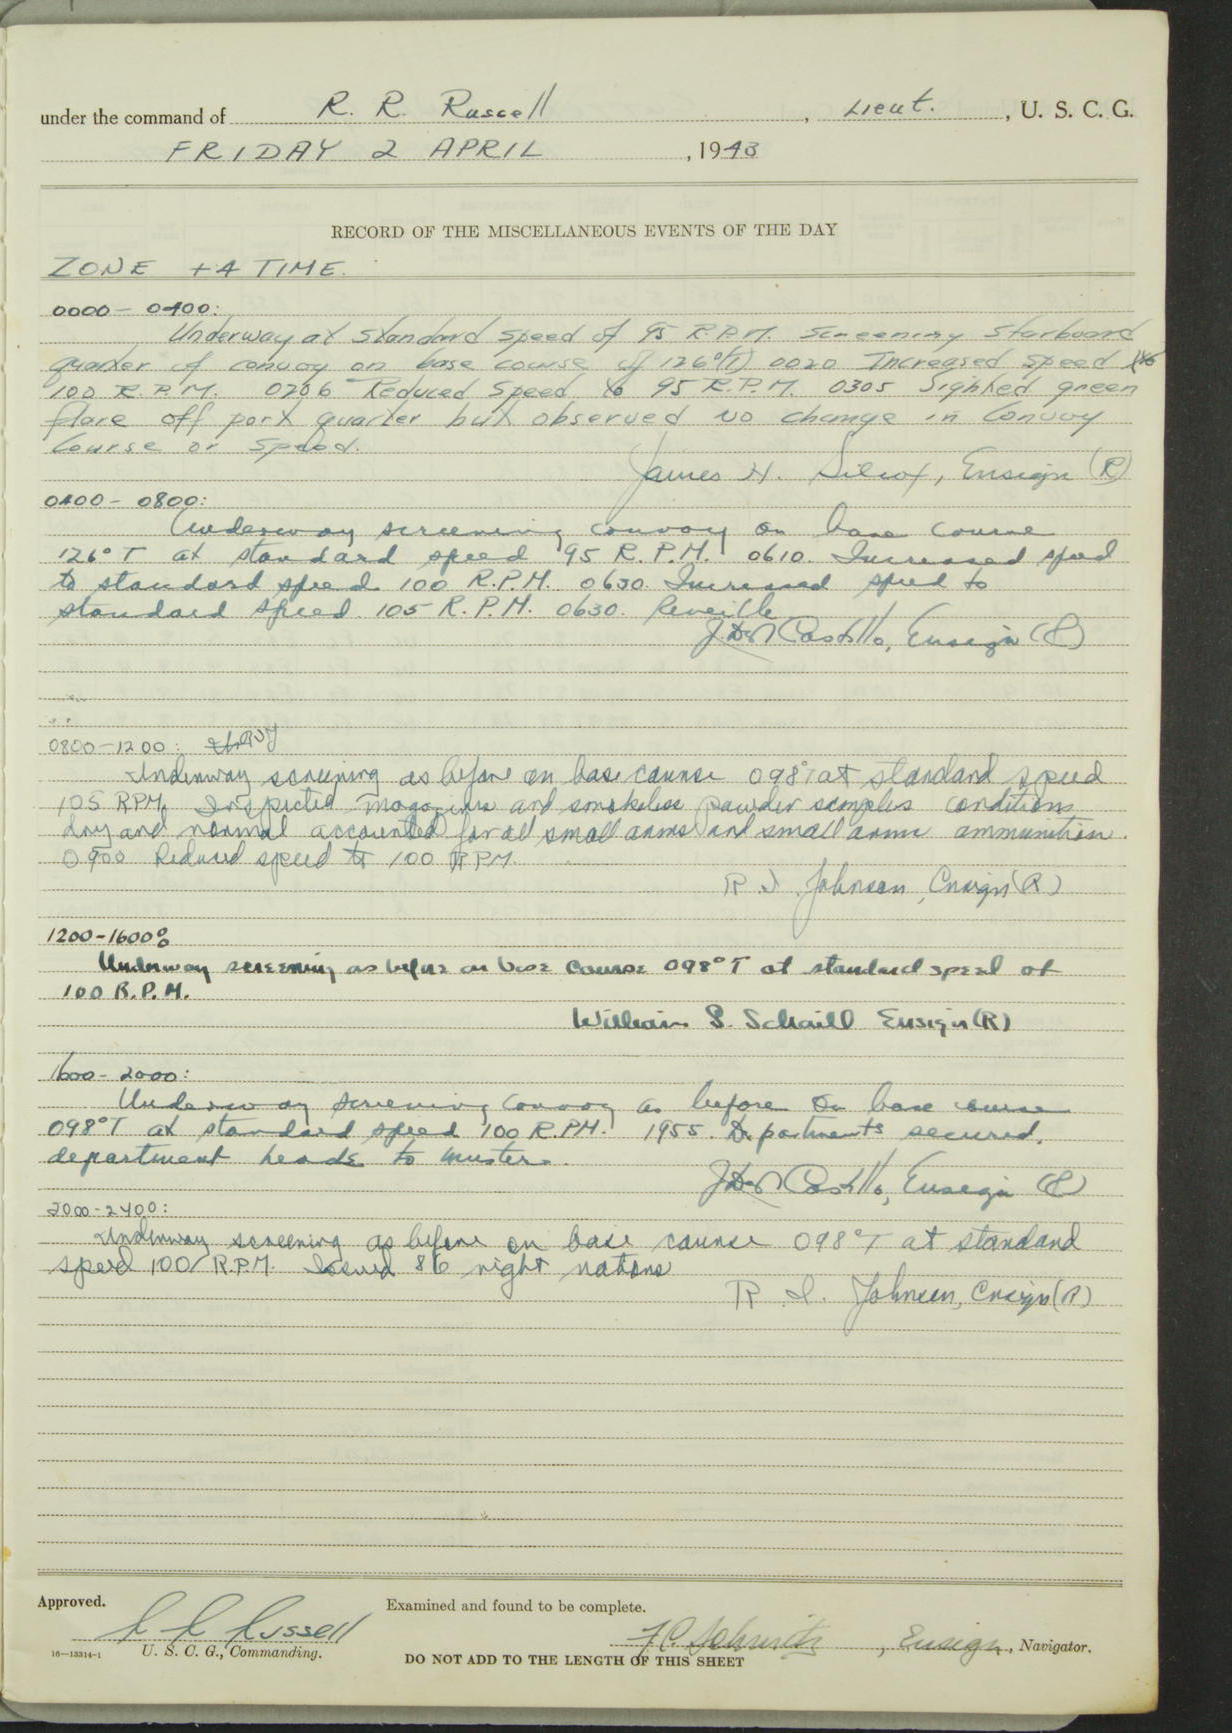 under the command of R. R. Russell, Lieut., U. S. C. G.
FRIDAY 2 APRIL, 1943
RECORD OF THE MISCELLANEOUS EVENTS OF THE DAY
ZONE +4 TIME.
0000 - 0400:
Underway at Standard Speed of 95 R.P.M. Screening Starboard
quarter of convoy on base course of 126°(T) 0020 Increased Speed to
100 R.P.M. 0206 Reduced Speed to 95 R.P.M. 0305 Sighted green
flare off port quarter but observed no change in Convoy
Course or Speed.
James H. Silcox, Ensign (R)
0400 - 0800:
Underway screening convoy on base course
126° T at standard speed 95 R.P.M. 0610. Increased speed
to standard speed 100 R.P.M. 0630. Increased speed to
standard speed 105 R.P.M. 0630. Reveille
J Del Castillo, Ensign (R)
0800-1200:
Underway screening as before on base course 098°T at standard speed
105 RPM. Inspected magazines and smokeless powder samples conditions
dry and normal accounted for all small arms and small arms ammunition.
0900 Reduced speed to 100 RPM.
R. I. Johnson, Ensign (R)
1200-1600:
Underway screening as before on base course 098°T at standard speed of
100 R.P.M.
William S. Schaill Ensign (R)
1600 - 2000:
Underway screening convoy as before on base course
098°T at standard speed 100 R.P.M. 1955. Departments secured.
department heads to muster.
J Del Castillo, Ensign (R)
2000-2400:
Underway screening as before on base course 098°T at standard
speed 100 R.P.M. Issued 86 night rations
R. I. Johnson, Ensign (R)
Approved.
Examined and found to be complete.
R R Russell
F.C. Schmitz, Ensign, Navigator.
16—13314-1
U. S. C. G., Commanding.
DO NOT ADD TO THE LENGTH OF THIS SHEET